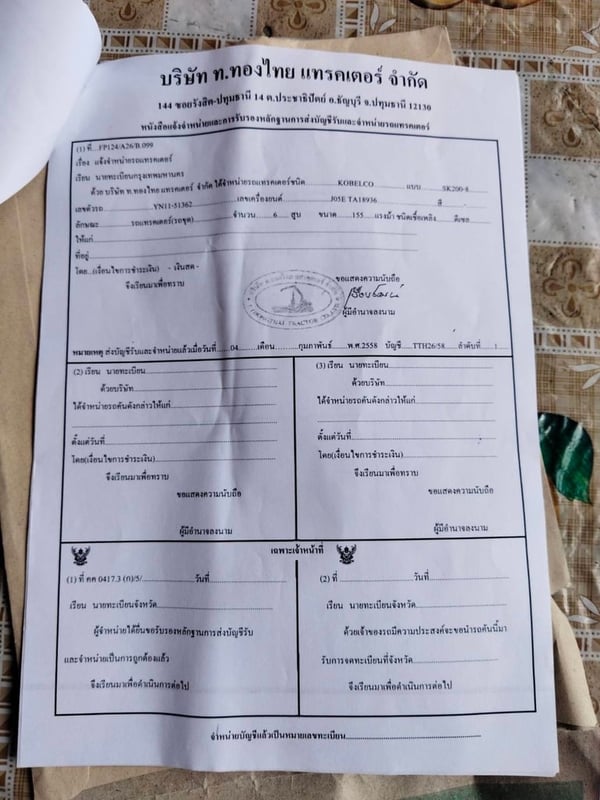 บริษัท ท.ทองไทย แทรคเตอร์ จำกัด
144 ซอยรังสิต-ปทุมธานี 14 ต.ประชาธิปัตย์ อ.ธัญบุรี จ.ปทุมธานี 12130
หนังสือแจ้งจำหน่ายและการรับรองหลักฐานการส่งบัญชีรับและจำหน่ายรถแทรคเตอร์
(1) ที่....FP124/A26/B.099
เรื่อง แจ้งจำหน่ายรถแทรคเตอร์
เรียน นายทะเบียนกรุงเทพมหานคร
ด้วย บริษัท ท.ทองไทย แทรคเตอร์ จำกัด ได้จำหน่ายรถแทรคเตอร์ชนิด KOBELCO แบบ SK200-8
เลขตัวรถ YN11-51362 เลขเครื่องยนต์ J05E TA18936 สี
ลักษณะ รถแทรคเตอร์(รถขุด) จำนวน 6 สูบ ขนาด 155 แรงม้า ชนิดเชื้อเพลิง ดีเซล
ให้แก่
ที่อยู่
โดย...(เงื่อนไขการชำระเงิน) - เงินสด -
จึงเรียนมาเพื่อทราบ
ขอแสดงความนับถือ
ผู้มีอำนาจลงนาม
หมายเหตุ ส่งบัญชีรับและจำหน่ายแล้วเมื่อวันที่ 04 เดือน กุมภาพันธ์ พ.ศ.2558 บัญชี TTH26/58 ลำดับที่ 1
(2) เรียน นายทะเบียน
ด้วยบริษัท
ได้จำหน่ายรถคันดังกล่าวให้แก่
ตั้งแต่วันที่
โดย(เงื่อนไขการชำระเงิน)
จึงเรียนมาเพื่อทราบ
ขอแสดงความนับถือ
ผู้มีอำนาจลงนาม
(3) เรียน นายทะเบียน
ด้วยบริษัท
ได้จำหน่ายรถคันดังกล่าวให้แก่
ตั้งแต่วันที่
โดย(เงื่อนไขการชำระเงิน)
จึงเรียนมาเพื่อทราบ
ขอแสดงความนับถือ
ผู้มีอำนาจลงนาม
เฉพาะเจ้าหน้าที่
(1) ที่ คค 0417.3 (ก)/5/ วันที่
เรียน นายทะเบียนจังหวัด
ผู้จำหน่ายได้ยื่นขอรับรองหลักฐานการส่งบัญชีรับ
และจำหน่ายเป็นการถูกต้องแล้ว
จึงเรียนมาเพื่อดำเนินการต่อไป
(2) ที่ วันที่
เรียน นายทะเบียนจังหวัด
ด้วยเจ้าของรถมีความประสงค์จะขอนำรถคันนี้มา
รับการจดทะเบียนที่จังหวัด
จึงเรียนมาเพื่อดำเนินการต่อไป
จำหน่ายบัญชีแล้วเป็นหมายเลขทะเบียน